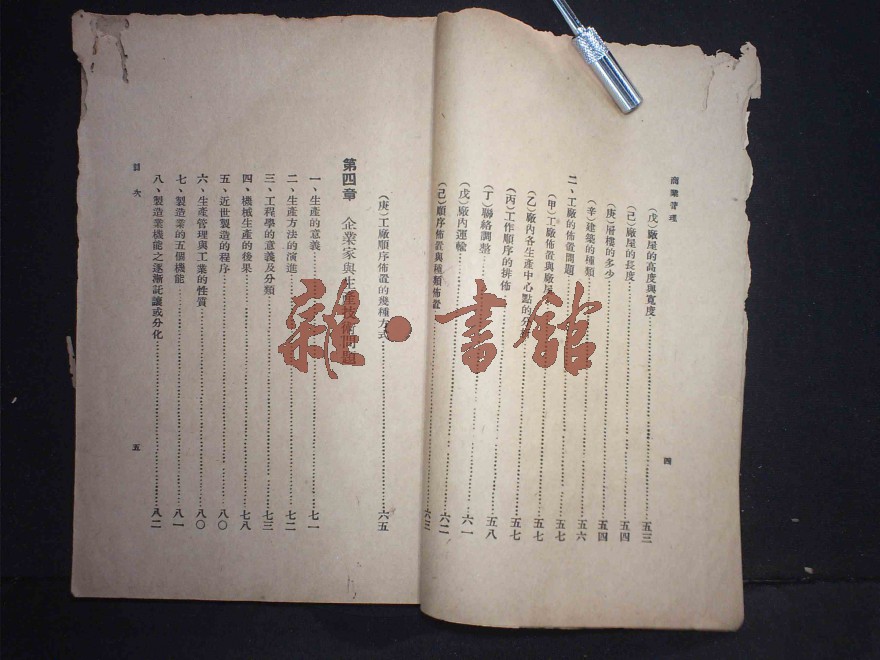 商業管理
四
(戊)廠屋的高度與寬度……五三
(己)廠屋的長度……五四
(庚)層樓的多少……五四
(辛)建築的種類……五六
二、工廠的佈置問題……五七
(甲)工廠佈置與廠屋……五七
(乙)廠內各生產中心點的分……五七
(丙)工作順序的排佈……五七
(丁)聯絡調整……五八
(戊)廠內運輸……六一
(己)順序佈置與種類佈置……六二
六三
(庚)工廠順序佈置的幾種方式……六五
第四章 企業家與生產技術問題
一、生產的意義……七一
二、生產方法的演進……七二
三、工程學的意義及分類……七三
四、機械生產的後果……七八
五、近世製造的程序……八〇
六、生產管理與工業的性質……八〇
七、製造業的五個機能……八一
八、製造業機能之逐漸託讓或分化……八二
目次
五
雜·書館